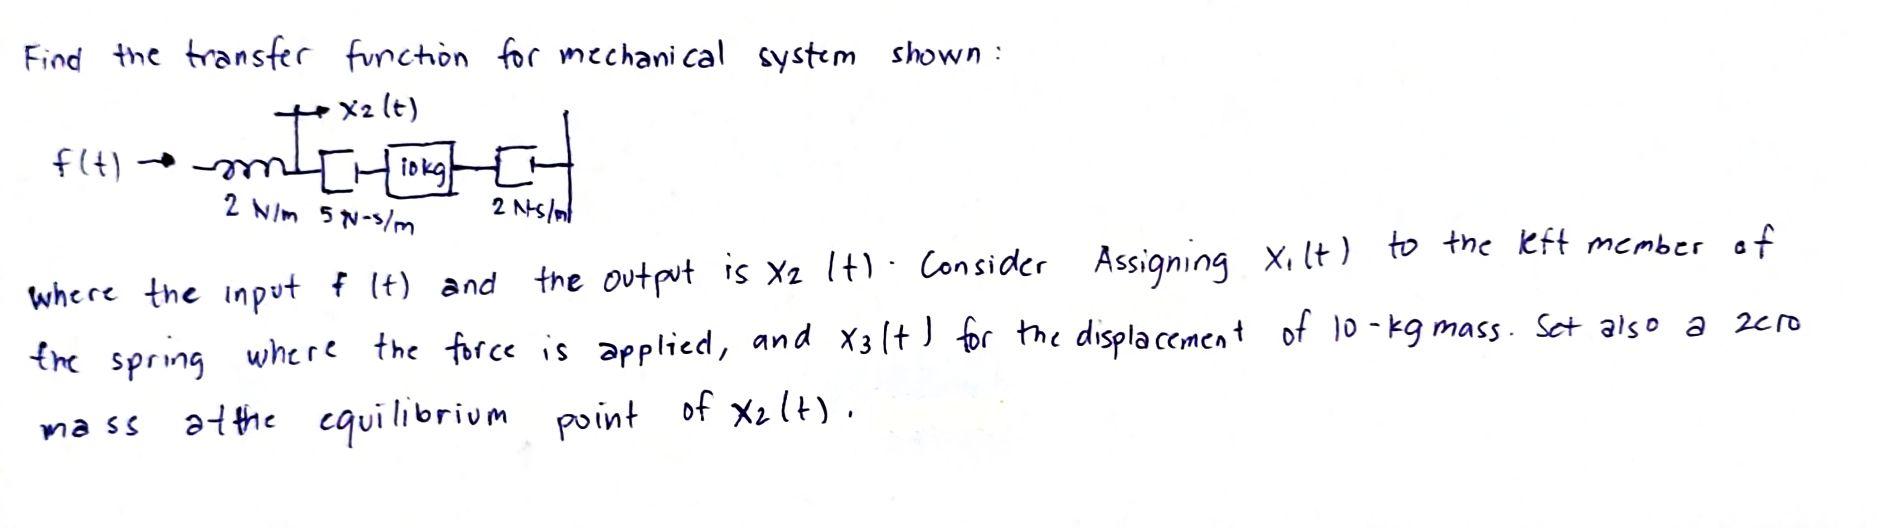 Find the transfer function for mechanical system shown:
x2(t)
f(t)
10kg
2 N/m 5 N-s/m 2 N-s/m
where the input f (t) and the output is x2 (t). Consider Assigning x1(t) to the left member of
the spring where the force is applied, and x3(t) for the displacement of 10-kg mass. Set also a zero
mass at the equilibrium point of x2(t).